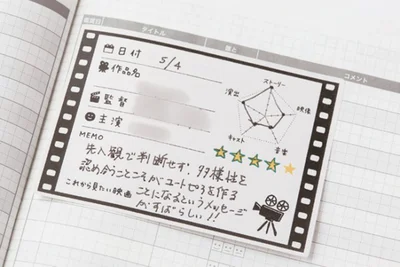 鑑賞日 タイトル 観と コメント
日付 5/4
作品名
監督
主演
ストーリー
演出 映像
キャスト 音楽
MEMO
先入観で判断せず、多様性を
認め合うことこそがユートピアを作る
これから見たい映画 ことになるというメッセージ
がすばらしい!!